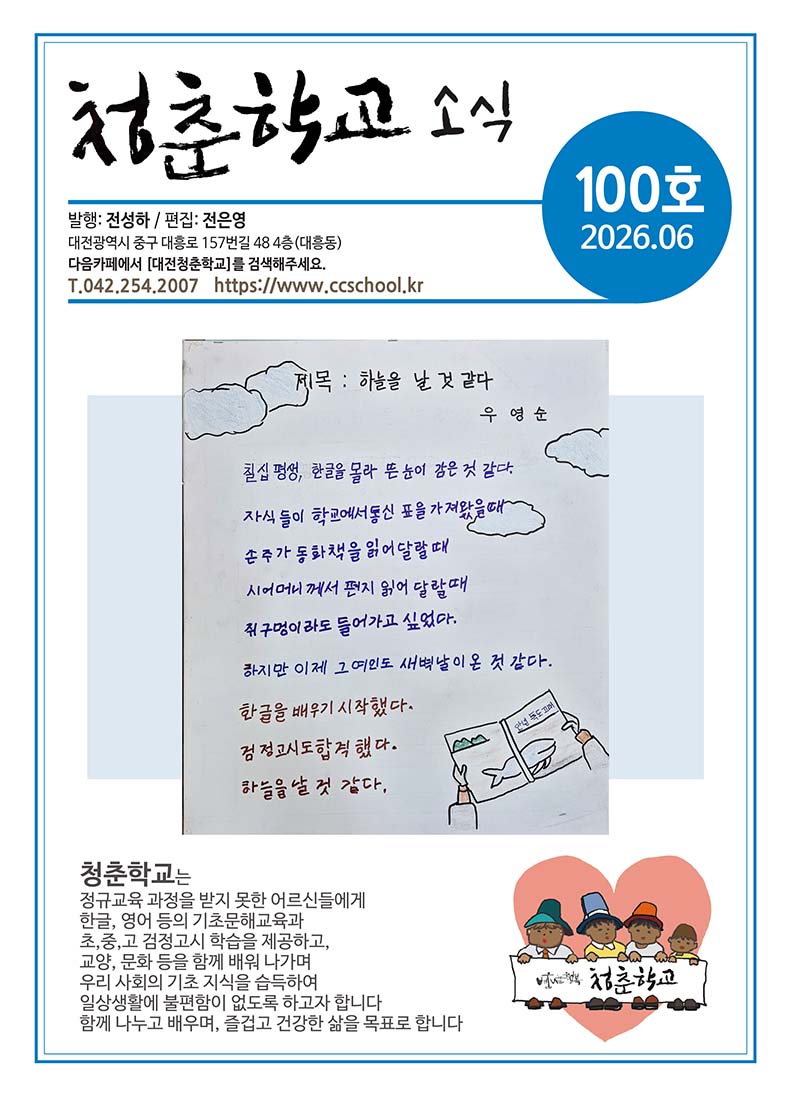 청춘학교 소식
100호
2026.06
발행: 전성하 / 편집: 전은영
대전광역시 중구 대흥로 157번길 48 4층(대흥동)
다음카페에서 [대전청춘학교]를 검색해주세요.
T.042.254.2007 https://www.ccschool.kr
제목 : 하늘을 날 것 같다
우영순
칠십 평생, 한글을 몰라 뜬 눈이 감은 것 같다.
자식들이 학교에서 통신 표을 가져왔을때
손주가 동화책을 읽어달랄때
시어머니께서 편지 읽어 달랄때
쥐구멍이라도 들어가고 싶었다.
하지만 이제 그 여인도 새벽날이 온 것 같다.
한글을 배우기 시작했다.
검정고시도 합격했다.
하늘을 날 것 같다.
안녕 독도 고래
청춘학교는
정규교육 과정을 받지 못한 어르신들에게
한글, 영어 등의 기초문해교육과
초,중,고 검정고시 학습을 제공하고,
교양, 문화 등을 함께 배워 나가며
우리 사회의 기초 지식을 습득하여
일상생활에 불편함이 없도록 하고자 합니다
함께 나누고 배우며, 즐겁고 건강한 삶을 목표로 합니다
청춘학교